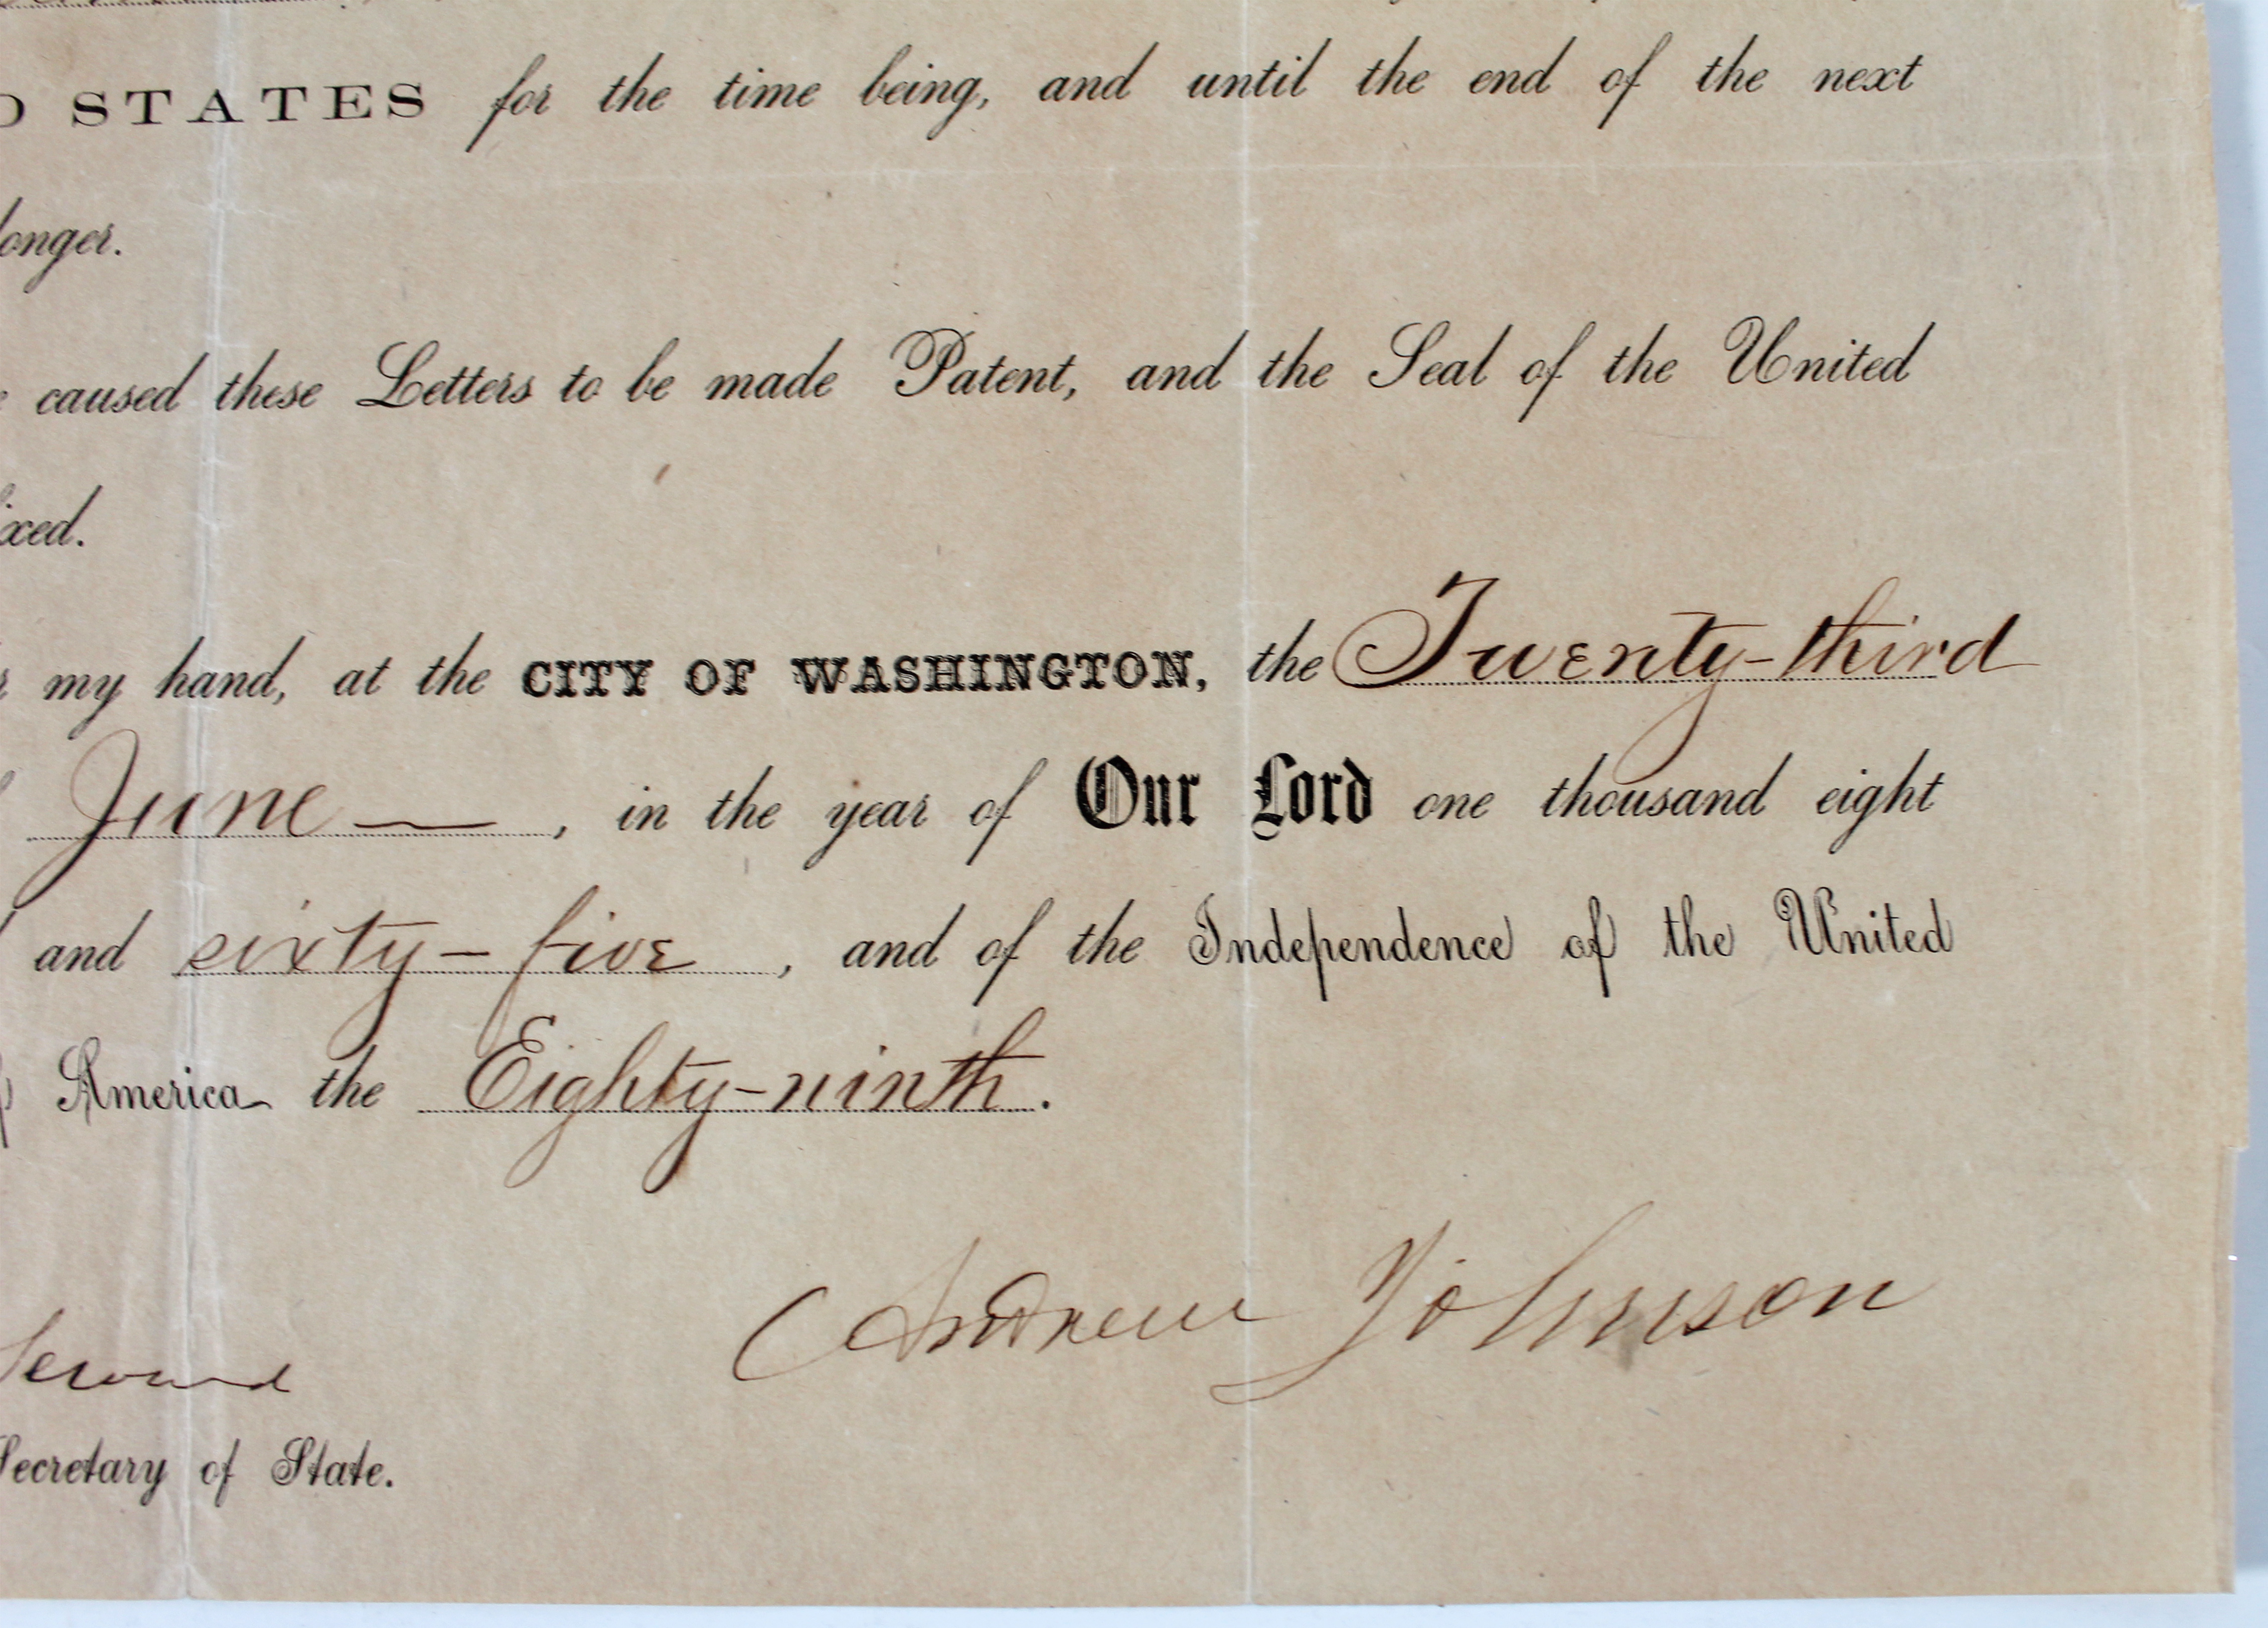 STATES for the time being, and until the end of the next
longer.
caused these Letters to be made Patent, and the Seal of the United
ixed.
my hand, at the CITY OF WASHINGTON, the Twenty-third
June —, in the year of Our Lord one thousand eight
and sixty-five, and of the Independence of the United
America the Eighty-ninth.
Andrew Johnson
Seward
Secretary of State.